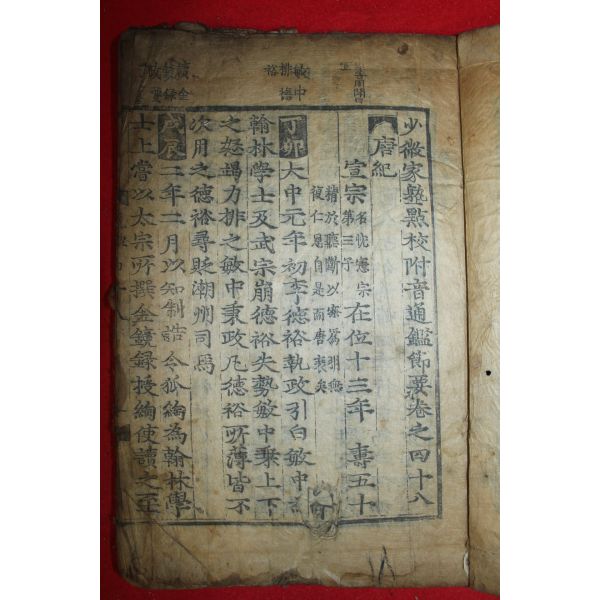 少微家塾點校附音通鑑節要卷之四十八
唐紀
宣宗 名忱憲宗第三子 在位十三年 壽五十
精於聽斷以察爲明無復仁恩自是而唐衰矣
丁卯 大中元年初李德裕執政引白敏中
翰林學士及武宗崩德裕失勢敏中乘上下
之怒竭力排之敏中秉政凡德裕所薄皆不
次用之德裕尋貶潮州司馬
戊辰 二年二月以知制誥令狐綯為翰林學
士上嘗以太宗所撰金鏡錄授綯使讀之至
敏中排德裕